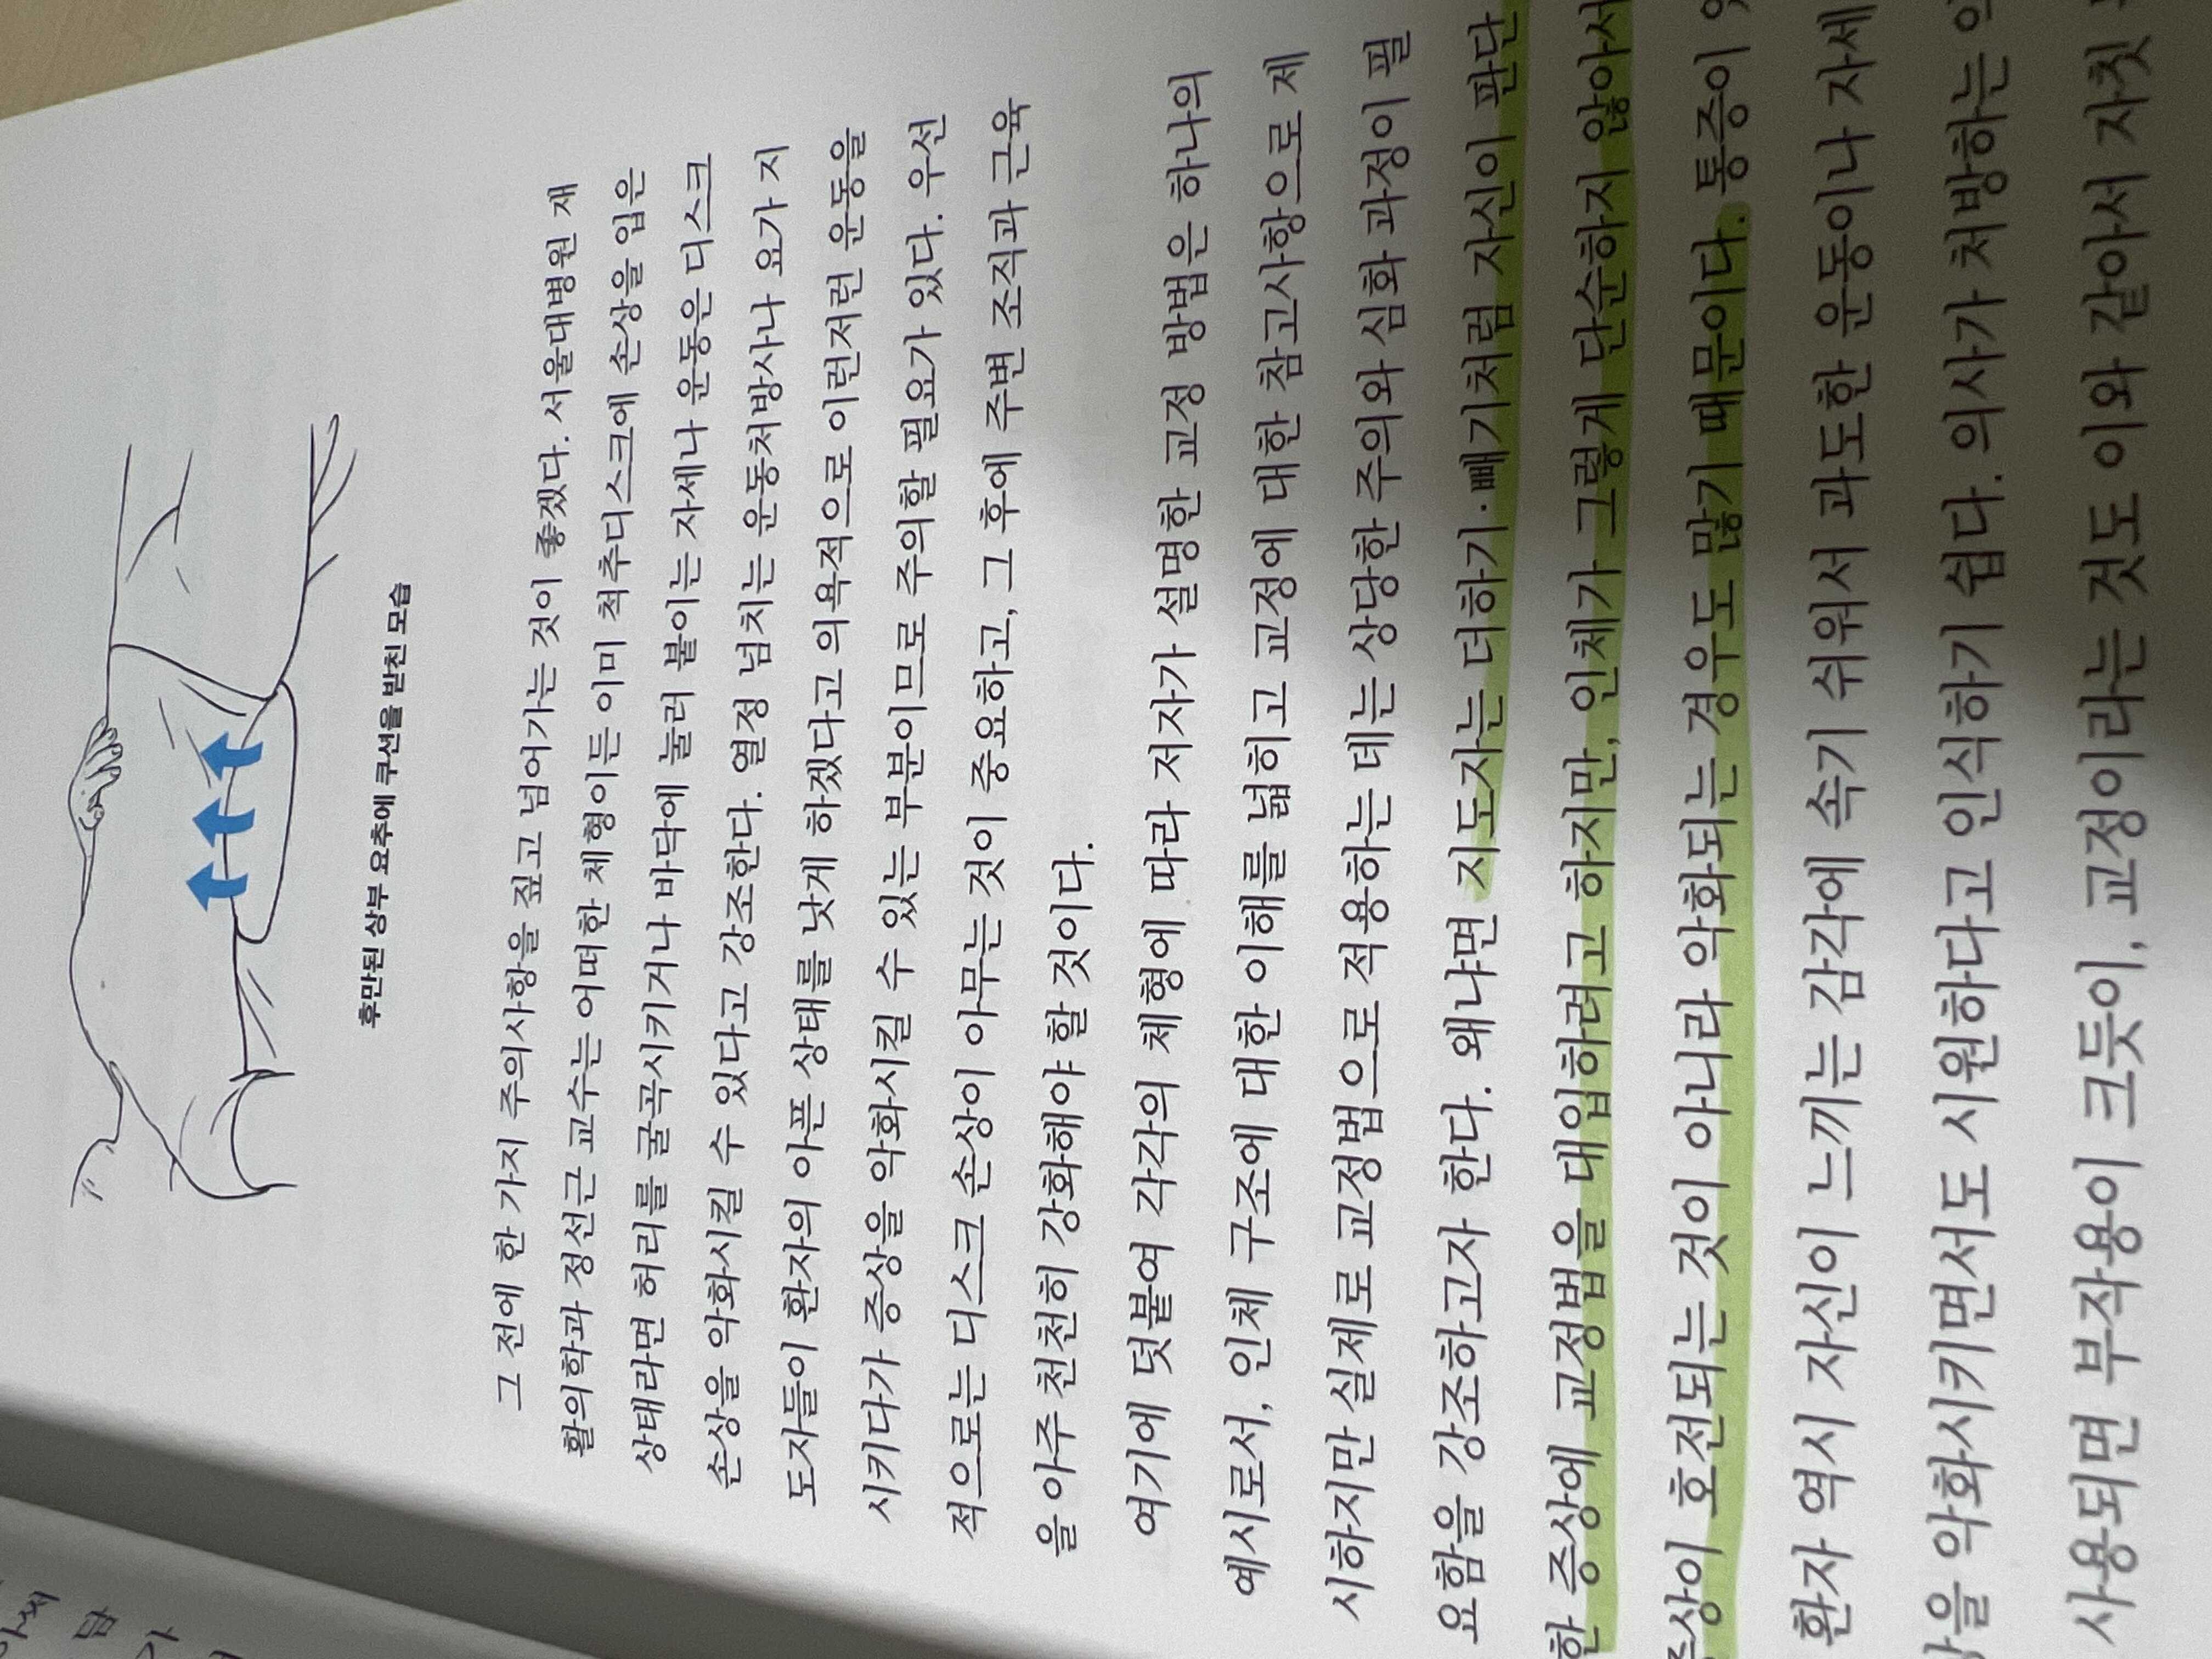 후만된 상부 요추에 쿠션을 받친 모습
그 전에 한 가지 주의사항을 짚고 넘어가는 것이 좋겠다. 서울대병원 재
활의학과 정선근 교수는 어떠한 체형이든 이미 척추디스크에 손상을 입은
상태라면 허리를 굴곡시키거나 바닥에 눌러 붙이는 자세나 운동은 디스크
손상을 악화시킬 수 있다고 강조한다. 열정 넘치는 운동처방사나 요가 지
도자들이 환자의 아픈 상태를 낫게 하겠다고 의욕적으로 이런저런 운동을
시키다가 증상을 악화시킬 수 있는 부분이므로 주의할 필요가 있다. 우선
적으로는 디스크 손상이 아무는 것이 중요하고, 그 후에 주변 조직과 근육
을 아주 천천히 강화해야 할 것이다.
여기에 덧붙여 각각의 체형에 따라 저자가 설명한 교정 방법은 하나의
예시로서, 인체 구조에 대한 이해를 넓히고 교정에 대한 참고사항으로 제
시하지만 실제로 교정법으로 적용하는 데는 상당한 주의와 심화 과정이 필
요함을 강조하고자 한다. 왜냐면 지도자는 더하기·빼기처럼 자신이 판단
한 증상에 교정법을 대입하려고 하지만, 인체가 그렇게 단순하지 않아서
증상이 호전되는 것이 아니라 악화되는 경우도 많기 때문이다. 통증이
환자 역시 자신이 느끼는 감각에 속기 쉬워서 과도한 운동이나 자세
을 악화시키면서도 시원하다고 인식하기 쉽다. 의사가 처방하는
사용되면 부작용이 크듯이, 교정이라는 것도 이와 같아서 자칫